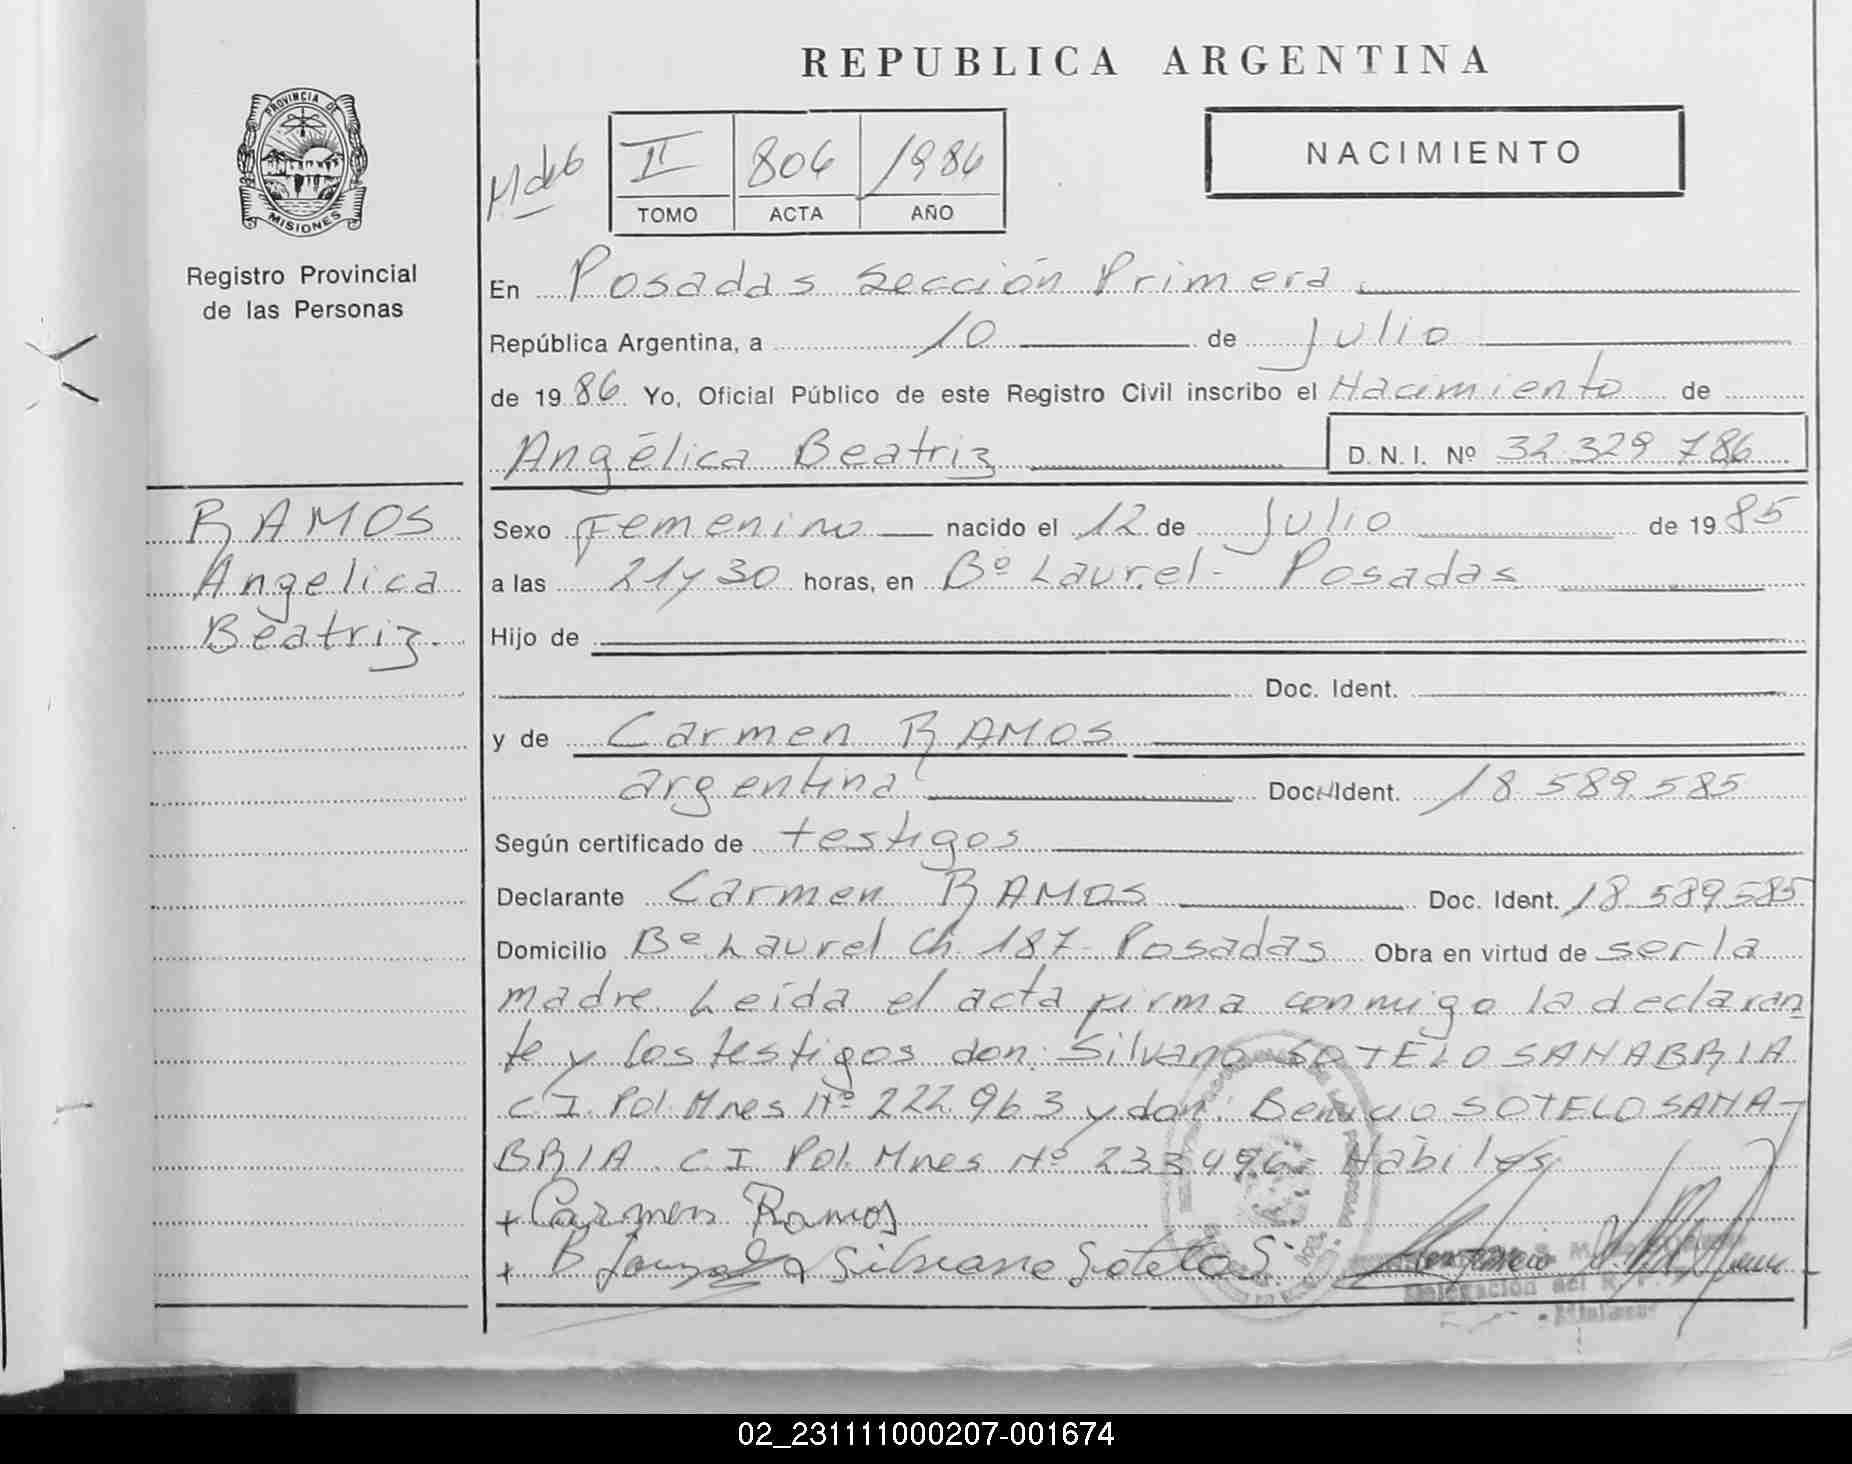 REPUBLICA ARGENTINA
PROVINCIA DE
MISIONES
Registro Provincial
de las Personas
II 806 1986
TOMO ACTA AÑO
NACIMIENTO
En Posadas Sección Primera
República Argentina, a 10 de Julio
de 1986 Yo, Oficial Público de este Registro Civil inscribo el Nacimiento de
Angélica Beatriz D.N.I. Nº 32.329.786
RAMOS
Angelica
Beatriz.
Sexo Femenino nacido el 12 de Julio de 1985
a las 21 y 30 horas, en Bº Laurel - Posadas
Hijo de
Doc. Ident.
y de Carmen RAMOS
argentina Doc. Ident. 18.589.585
Según certificado de testigos
Declarante Carmen RAMOS Doc. Ident. 18.589.585
Domicilio Bº Laurel Ch. 187 - Posadas Obra en virtud de ser la
madre. Leída el acta firma conmigo la declaran
te y los testigos don: Silvano SOTELO SANABRIA
C.I. Pol. Mnes Nº 222.963 y don: Benicio SOTELO SANA-
BRIA C.I. Pol. Mnes Nº 233496 - Hábiles
+ Carmen Ramos
+ B Silvano Sotelo S.
Delegación del R. P.
02_231111000207-001674